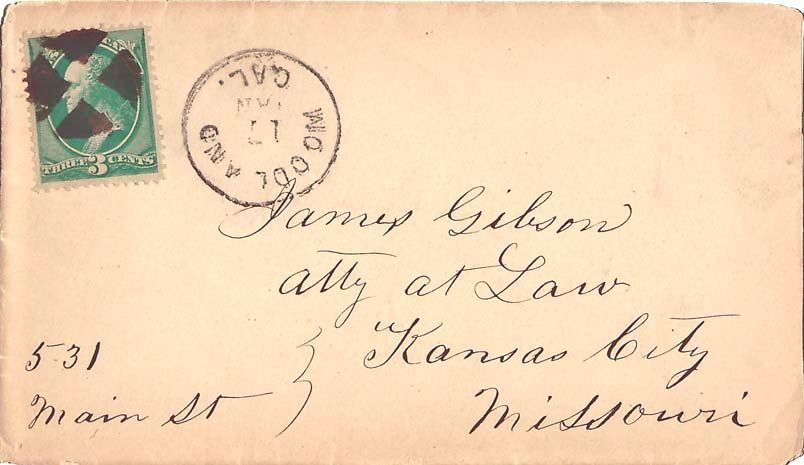 THREE 3 CENTS
WOODLAND
CAL.
JAN
17
James Gibson
atty at Law
Kansas City
Missouri
531
Main St